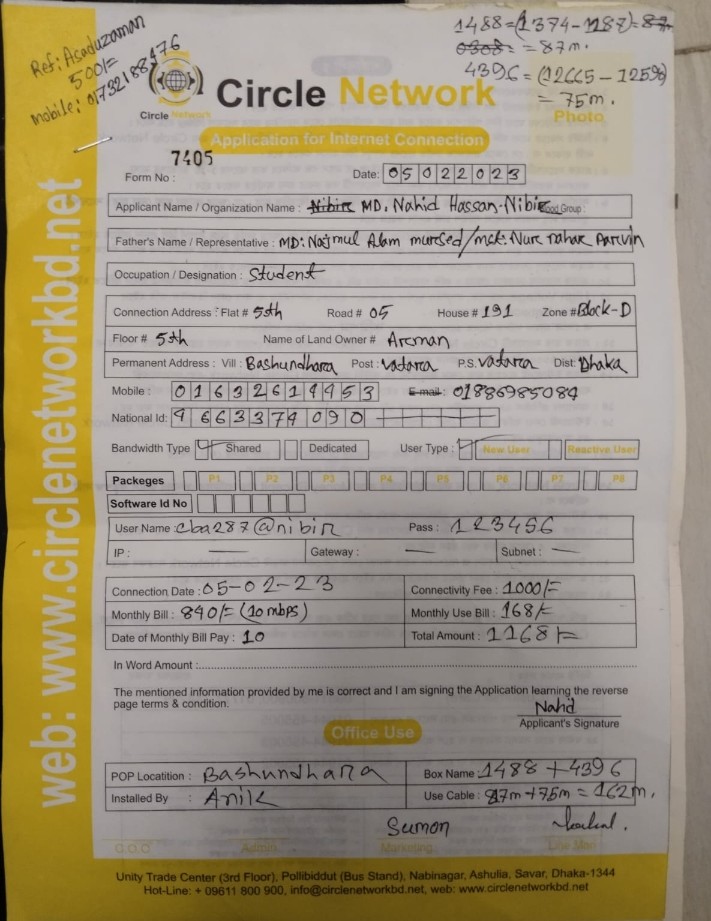 Ref: Asaduzaman
500/=
mobile: 01732188476
1488=(1374-1187)=87
= 87m.
4396=(12665-12590)
= 75m.
Circle Network
Circle Network
Photo
Application for Internet Connection
7405
Form No :
Date: 05022023
Applicant Name / Organization Name : Nibir MD. Nahid Hassan-Nibir Blood Group :
Father's Name / Representative : MD: Najmul Alam mursed/mst: Nur nahar Parvin
Occupation / Designation : Student
Connection Address : Flat # 5th Road # 05 House # 191 Zone # Block-D
Floor # 5th Name of Land Owner # Arman
Permanent Address : Vill : Bashundhara Post : vatara P.S. vatara Dist: Dhaka
Mobile : 01632614453 E-mail: 01886985084
National Id: 4663374090
Bandwidth Type Shared Dedicated User Type : New User Reactive User
Packeges P1 P2 P3 P4 P5 P6 P7 P8
Software Id No
User Name : cba287@nibir Pass : 123456
IP : — Gateway : — Subnet : —
Connection Date : 05-02-23 Connectivity Fee : 1000/=
Monthly Bill : 840/= (10 mbps) Monthly Use Bill : 168/=
Date of Monthly Bill Pay : 10 Total Amount : 1168/=
In Word Amount :
The mentioned information provided by me is correct and I am signing the Application learning the reverse
page terms & condition.
Nahid
Applicant's Signature
Office Use
POP Locatition : Bashundhara Box Name 1488+4396
Installed By : Anik Use Cable : 87m+75m = 162m.
Sumon
C.O.O Admin Marketing Line Man
Unity Trade Center (3rd Floor), Pollibiddut (Bus Stand), Nabinagar, Ashulia, Savar, Dhaka-1344
Hot-Line: + 09611 800 900, info@circlenetworkbd.net, web: www.circlenetworkbd.net
web: www.circlenetworkbd.net